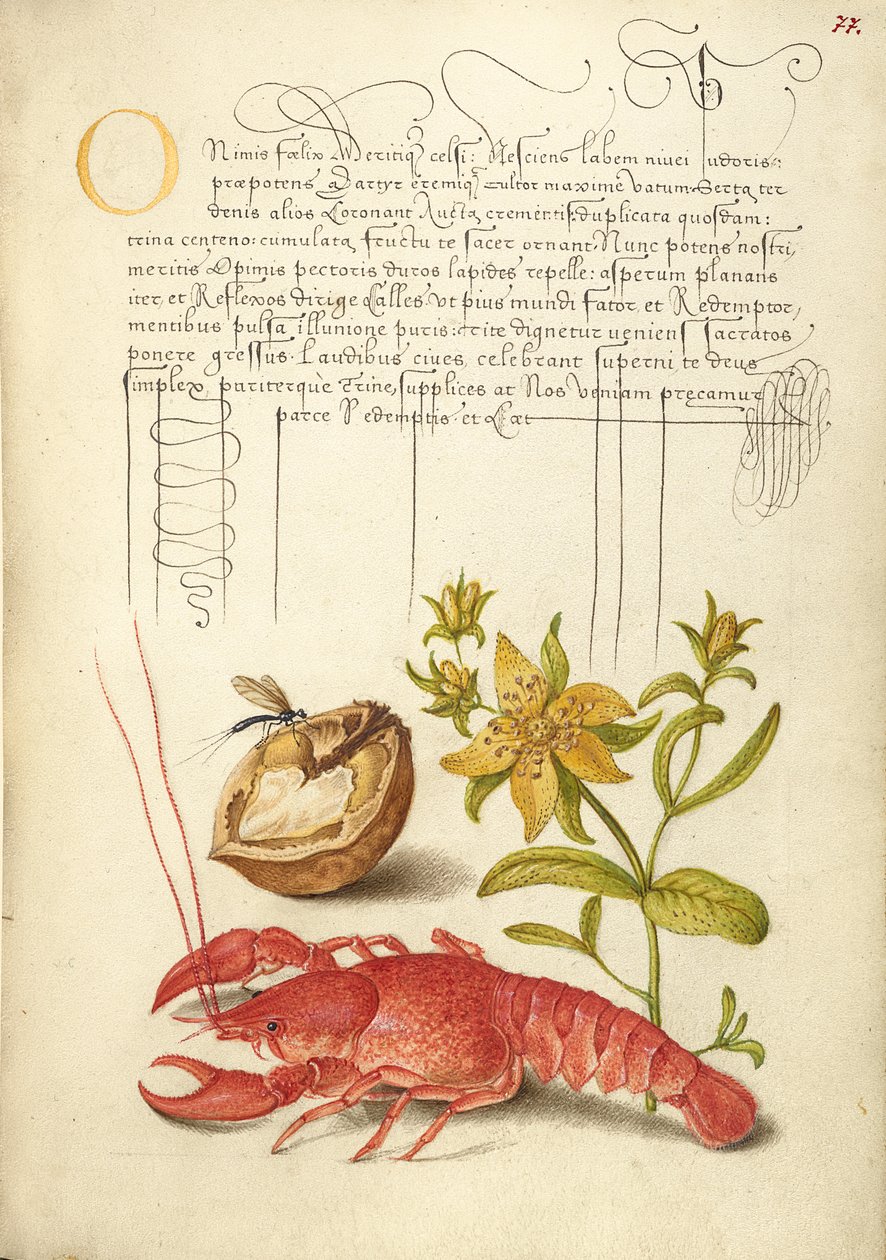 77.
O Nimis fœlix Meritiq3 celsi: Nesciens labem nivei pudoris:
præpotens Martyr eremiq3 cultor maxime vatum. Serta ter
denis alios Coronant Aucta crementis: duplicata quosdam:
trina centeno: cumulata fructu te sacer ornant. Nunc potens nostri,
meritis Opimis pectoris duros lapides repelle: asperum planans
iter, et Reflexos dirige Calles. Ut pius mundi Sator, et Redemptor,
mentibus pulsa illunione puris: rite dignetur veniens sacratos
ponere gressus. Laudibus cives, celebrant superni te deus
simplex, pariterque Trine, supplices at Nos veniam precamur
parce Redemptis. et Cæt